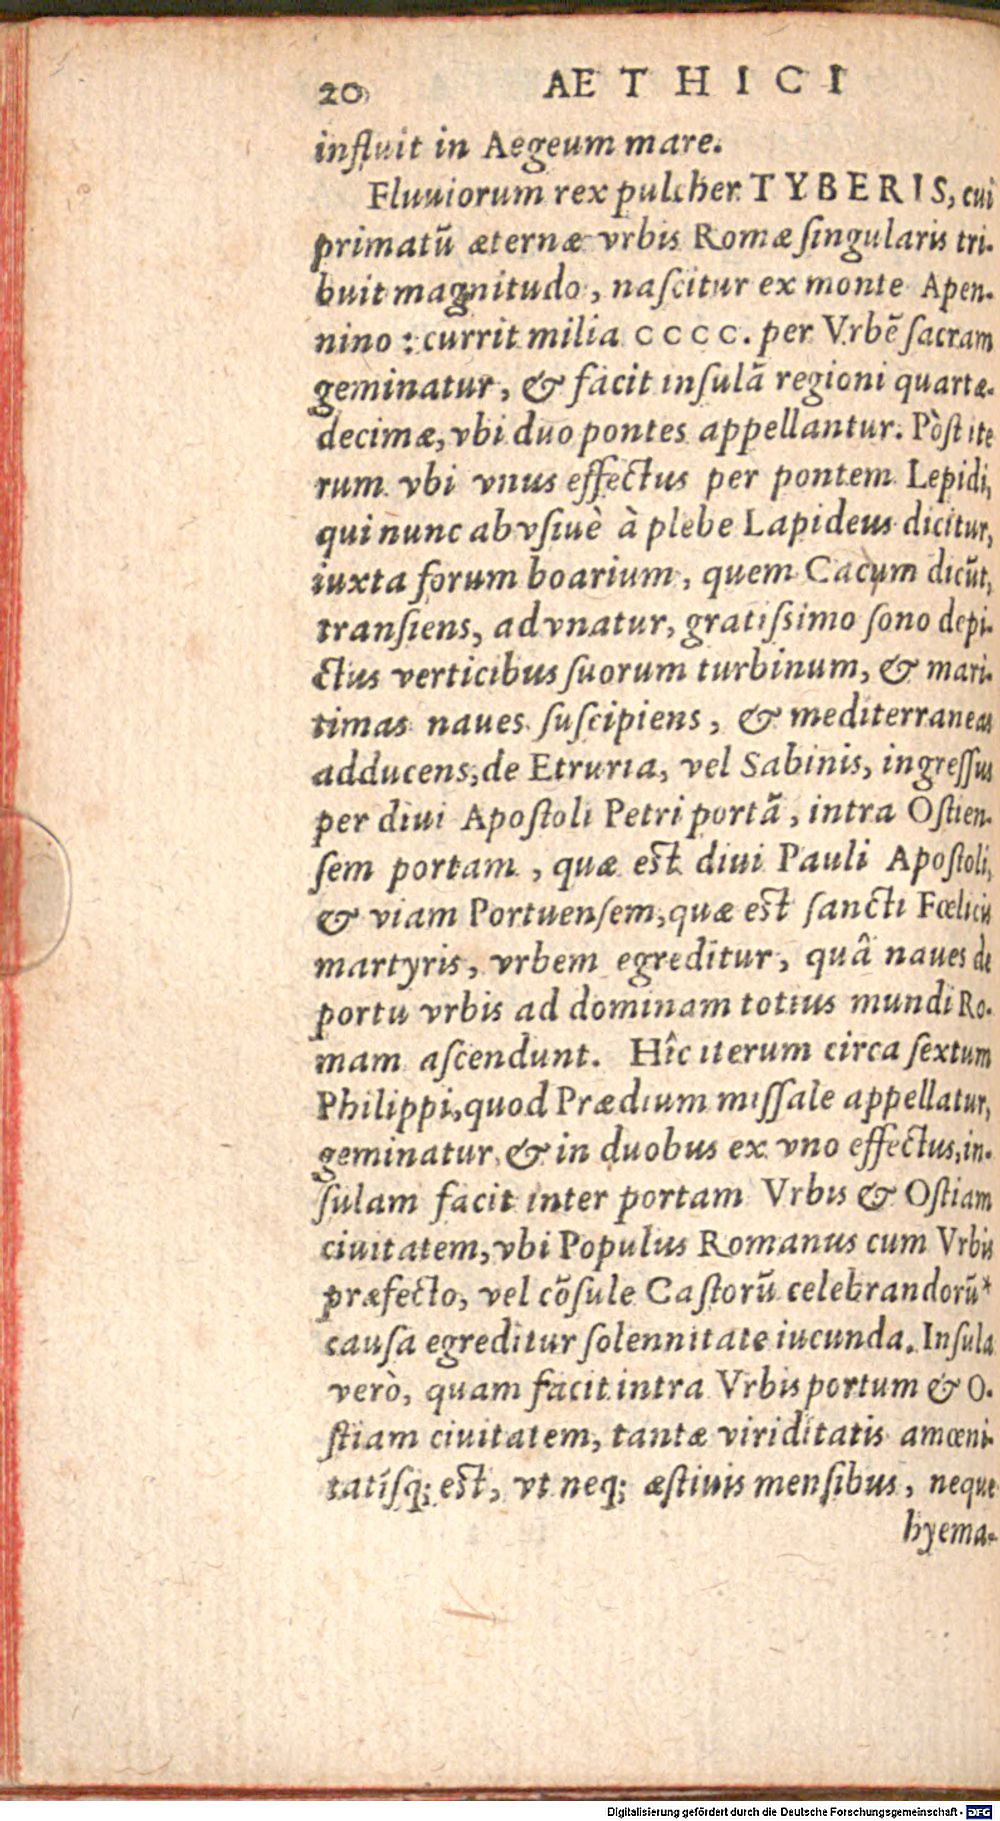 20 AETHICI
influit in Aegeum mare.
Fluuiorum rex pulcher TYBERIS, cui
primatũ æternæ vrbis Romæ ſingularis tri-
buit magnitudo, naſcitur ex monte Apen-
nino : currit milia CCCC. per Vrbẽ ſacram
geminatur, & facit inſulã regioni quartæ-
decimæ, vbi duo pontes appellantur. Pòſt ite
rum vbi vnus effectus per pontem Lepidi,
qui nunc abvſiuè à plebe Lapideus dicitur,
iuxta forum boarium, quem Cacum dicũt,
tranſiens, advnatur, gratiſsimo ſono depi-
ctus verticibus ſuorum turbinum, & mari-
timas naues ſuſcipiens, & mediterraneas
adducens, de Etruria, vel Sabinis, ingreſſus
per diui Apoſtoli Petri portã, intra Oſtien-
ſem portam, quæ eſt diui Pauli Apoſtoli,
& viam Portuenſem, quæ eſt ſancti Fœlicis
martyris, vrbem egreditur, quâ naues de
portu vrbis ad dominam totius mundi Ro-
mam aſcendunt. Hîc iterum circa ſextum
Philippi, quod Prædium miſſale appellatur,
geminatur, & in duobus ex vno effectus, in-
ſulam facit inter portam Vrbis & Oſtiam
ciuitatem, vbi Populus Romanus cum Vrbis
præfecto, vel cõſule Caſtorũ celebrandorũ*
cauſa egreditur ſolennitate iucunda. Inſula
verò, quam facit intra Vrbis portum & O-
ſtiam ciuitatem, tantæ viriditatis amœni-
tatíſq; eſt, vt neq; æſtiuis menſibus, neque
hyema-
Digitalisierung gefördert durch die Deutsche Forschungsgemeinschaft - DFG